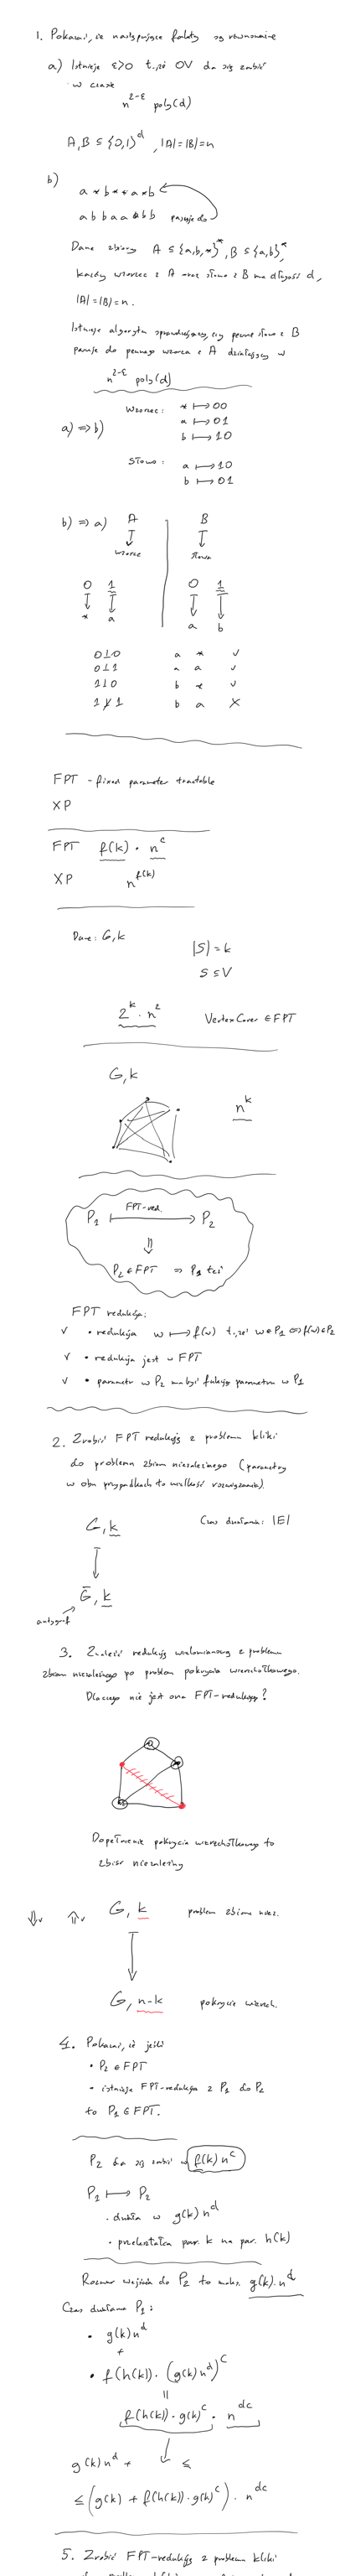 1. Pokazać, że następujące fakty są równoważne
a) Istnieje ε>0 t.że OV da się zrobić
w czasie
n^{2-ε} poly(d)
A, B ⊆ {0,1}^d, |A|=|B|=n
b)
a * b * * a * b
a b b a a b b b pasuje do
Dane zbiory A ⊆ {a,b,*}^*, B ⊆ {a,b}^*,
każdy wzorzec z A oraz słowo z B ma długość d,
|A|=|B|=n.
Istnieje algorytm sprawdzający, czy pewne słowo z B
pasuje do pewnego wzorca z A działający w
n^{2-ε} poly(d)
a) ⇒ b)
Wzorzec: * ↦ 00
a ↦ 01
b ↦ 10
Słowo: a ↦ 10
b ↦ 01
b) ⇒ a) A B
wzorce słowa
0 1 0 1
* a a b
0⊥0 a * ✓
0⊥1 a a ✓
1⊥0 b * ✓
1⊥̸1 b a X
FPT - fixed parameter tractable
XP
FPT f(k) · n^c
XP n^{f(k)}
Dane: G, k
|S| = k
S ⊆ V
2^k · n^2 Vertex Cover ∈ FPT
G, k
n^k
P₁ FPT-red. P₂
⇓
P₂ ∈ FPT ⇒ P₁ też
FPT redukcja:
✓ • redukcja w ↦ f(w) t.że w∈P₁ ⇔ f(w)∈P₂
✓ • redukcja jest w FPT
✓ • parametr w P₂ ma być funkcją parametru w P₁
2. Zrobić FPT redukcję z problemu kliki
do problemu zbioru niezależnego (parametry
w obu przypadkach to wielkość rozwiązania).
G, k Czas działania: |E|
Ḡ, k
antygraf
3. Znaleźć redukcję wielomianową z problemu
zbioru niezależnego do problem pokrycia wierzchołkowego.
Dlaczego nie jest ona FPT-redukcją?
Dopełnienie pokrycia wierzchołkowego to
zbiór niezależny
⇓✓ ⇑✓ G, k problem zbioru niez.
G, n-k pokrycie wierzch.
4. Pokazać, że jeśli
• P₂ ∈ FPT
• istnieje FPT-redukcja z P₁ do P₂
to P₁ ∈ FPT.
P₂ da się zrobić w f(k) n^c
P₁ ↦ P₂
• działa w g(k) n^d
• przekształca par. k na par. h(k)
Rozmiar wejścia do P₂ to maks. g(k)·n^d
Czas działania P₁:
• g(k) n^d
+
• f(h(k)) · (g(k) n^d)^c
=
f(h(k)) · g(k)^c · n^{dc}
g(k) n^d + ≤
≤ (g(k) + f(h(k)) · g(k)^c) · n^{dc}
5. Zrobić FPT-redukcję z problemu kliki